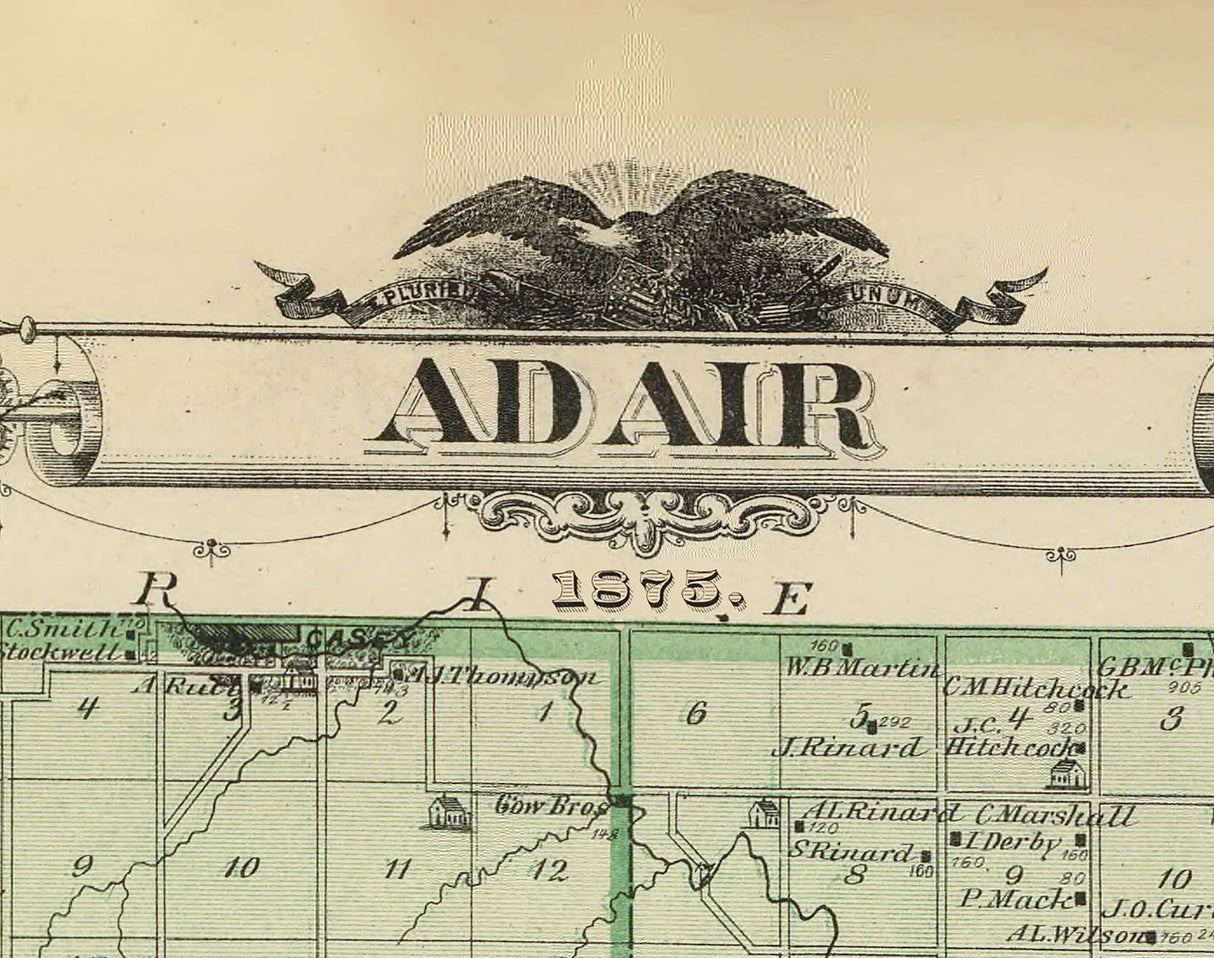 PLURIBUS UNUM
ADAIR
1875.
R I E
C. Smith
Stockwell
CASEY
A.J. Thompson
160
W.B Martin
G B Mc
905
C M Hitchcock
80
4 3 2 1 6 5 4 3
292
J.C.
320
J. Rinard
Hitchcock
Gow Bros
148
A L Rinard
C. Marshall
120
I Derby
S Rinard
160
160.
160
9 10 11 12 8 9 10
80
P. Mack
J.O.
A L. Wilson
160